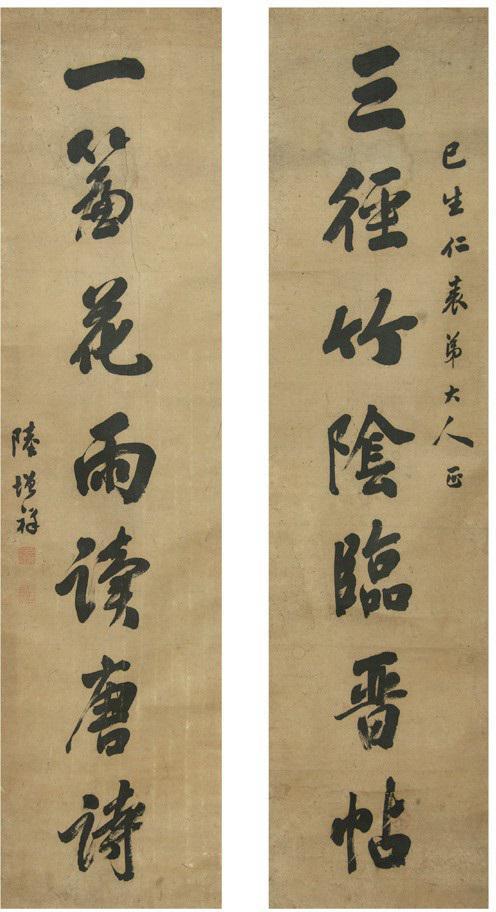 巳生仁表弟大人正
三徑竹陰臨晋帖
一簾花雨读唐詩
陸增祥